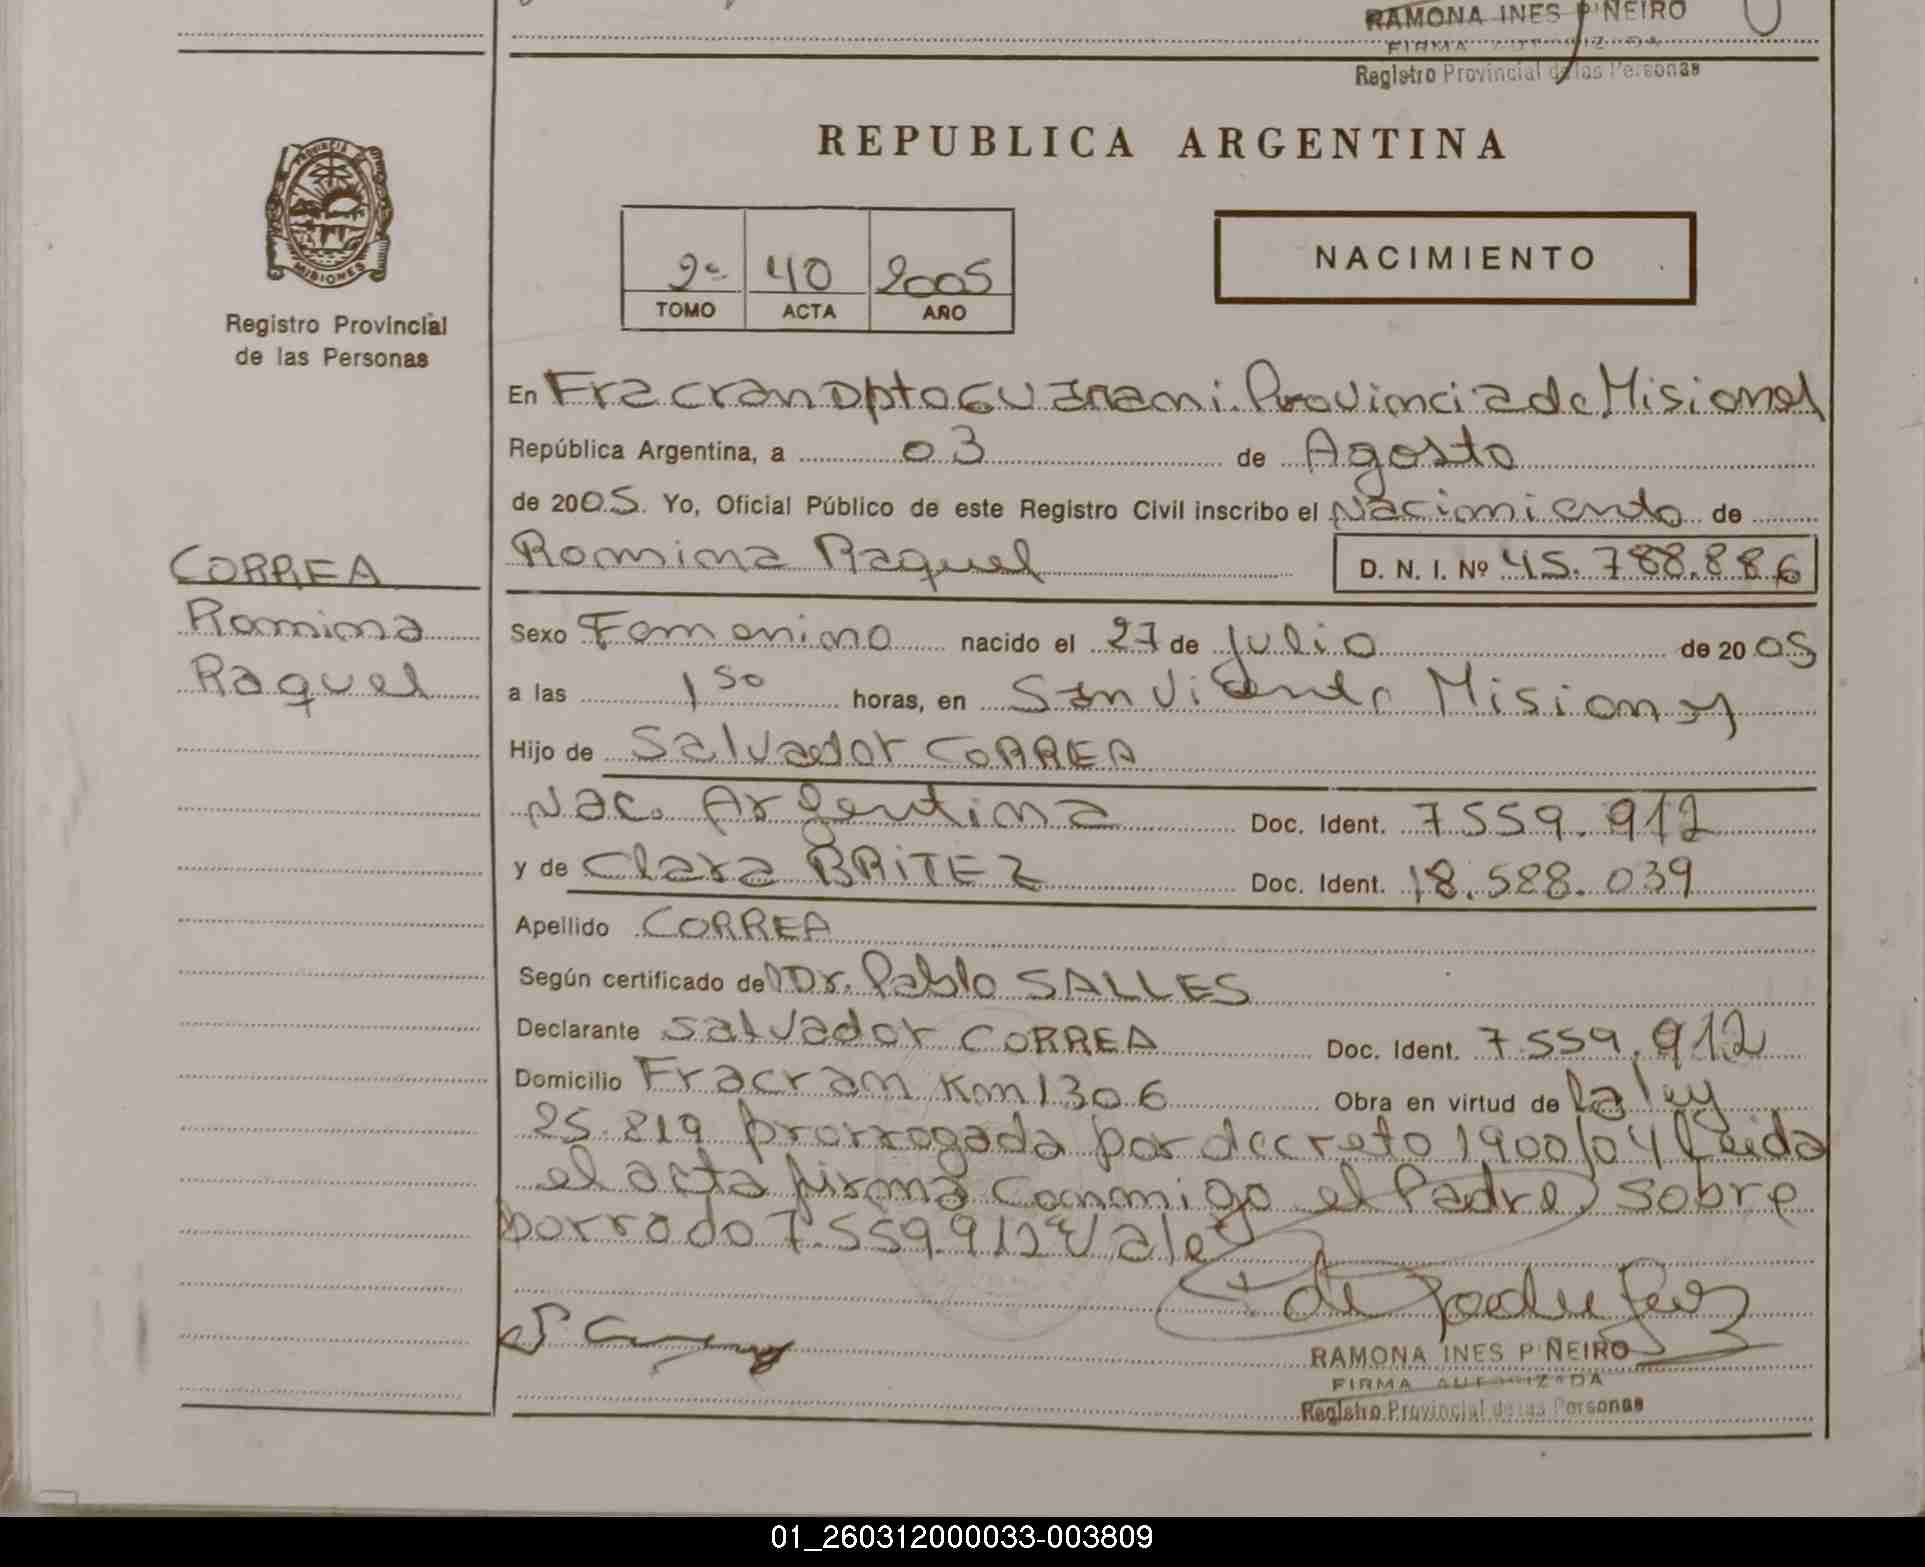 RAMONA INES PIÑEIRO
FIRMA AUTORIZADA
Registro Provincial de las Personas
REPUBLICA ARGENTINA
PROVINCIA DE
MISIONES
Registro Provincial
de las Personas
2º 40 2005
TOMO ACTA AÑO
NACIMIENTO
En Fracran Dpto Guarani. Provincia de Misiones
República Argentina, a 03 de Agosto
de 2005. Yo, Oficial Público de este Registro Civil inscribo el Nacimiento de
Romina Raquel D. N. I. Nº 45.788.886
CORREA
Romina
Raquel
Sexo Femenino nacido el 27 de Julio de 2005
a las 1 50 horas, en San Vicente Misiones
Hijo de Salvador CORREA
Nac. Argentina Doc. Ident. 7559.912
y de Clara BRITEZ Doc. Ident. 18.588.039
Apellido CORREA
Según certificado del Dr. Pablo SALLES
Declarante Salvador CORREA Doc. Ident. 7.559.912
Domicilio Fracran Km 1306 Obra en virtud de la ley
25.819 prorrogada por decreto 1900/04 Leida
el acta firma conmigo el Padre, sobre
borrado 7.559.912 Vale
RAMONA INES PIÑEIRO
FIRMA AUTORIZADA
Registro Provincial de las Personas
01_260312000033-003809